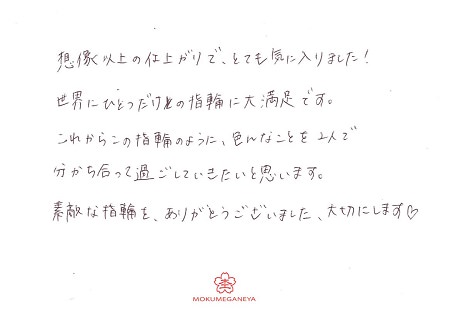 想像以上の仕上がりで、とても気に入りました!
世界にひとつだけの指輪に大満足です。
これからこの指輪のように、色んなことを2人で
分かち合って過ごしていきたいと思います。
素敵な指輪を、ありがとうございました、大切にします♡
MOKUMEGANEYA